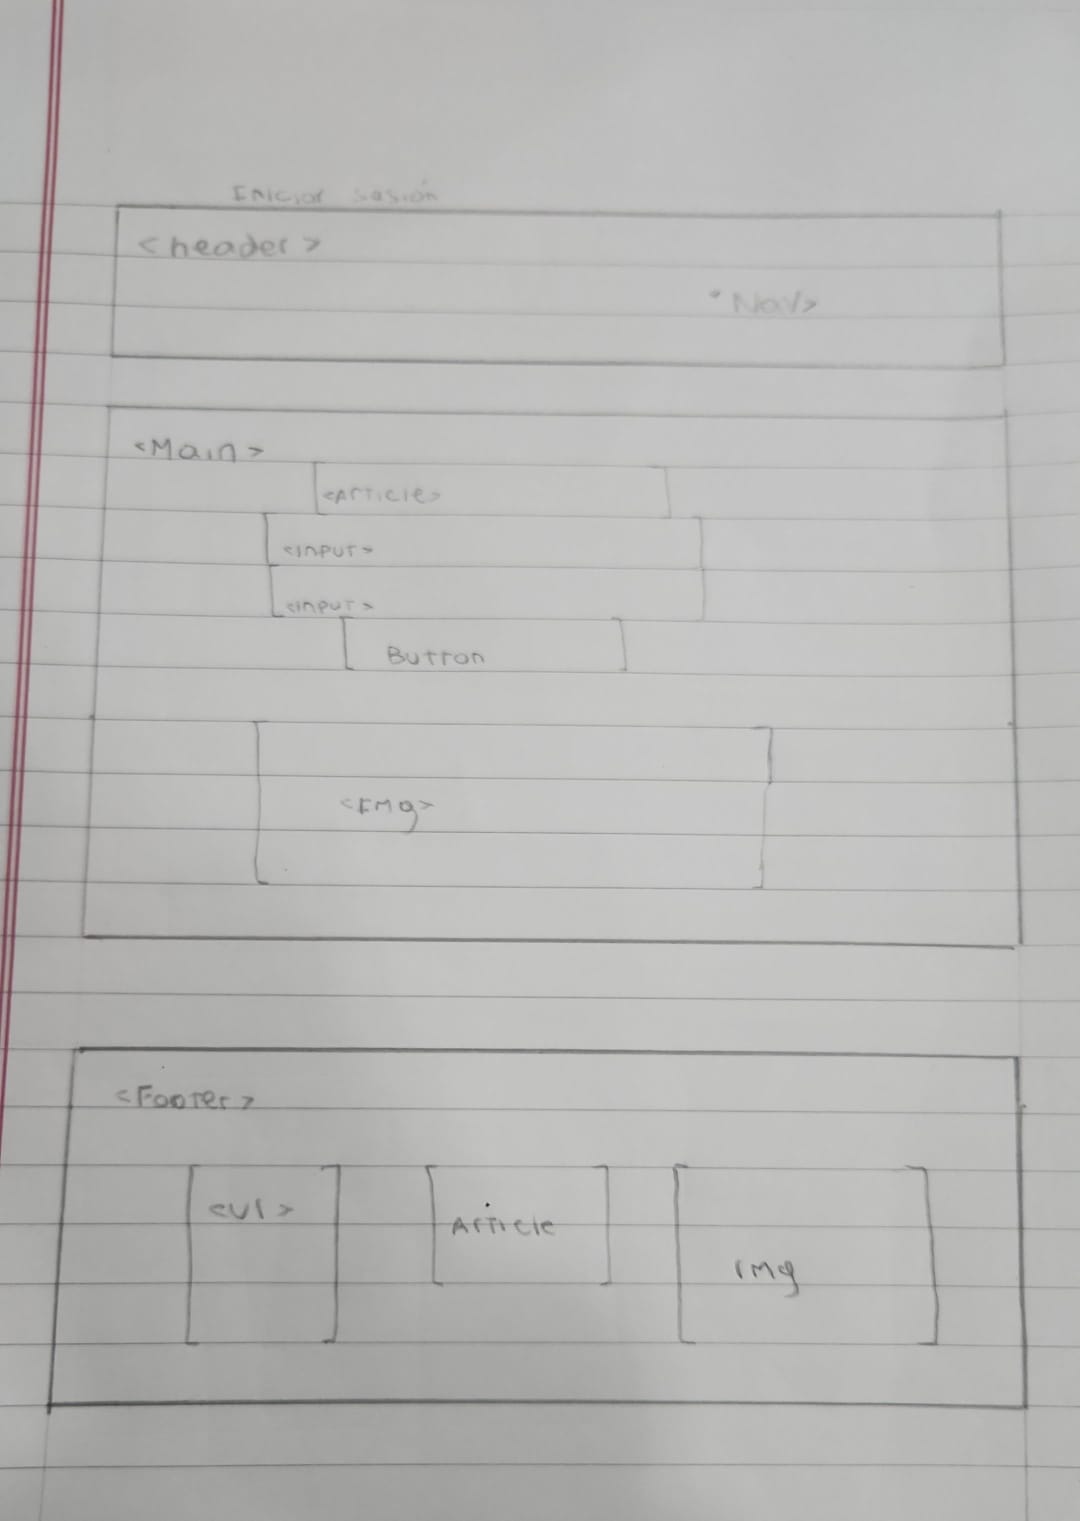 Iniciar sasión
<header>
Nav>
<Main>
<Article>
<input>
<input>
Button
<Img>
<Footer>
<ul>
Article
img